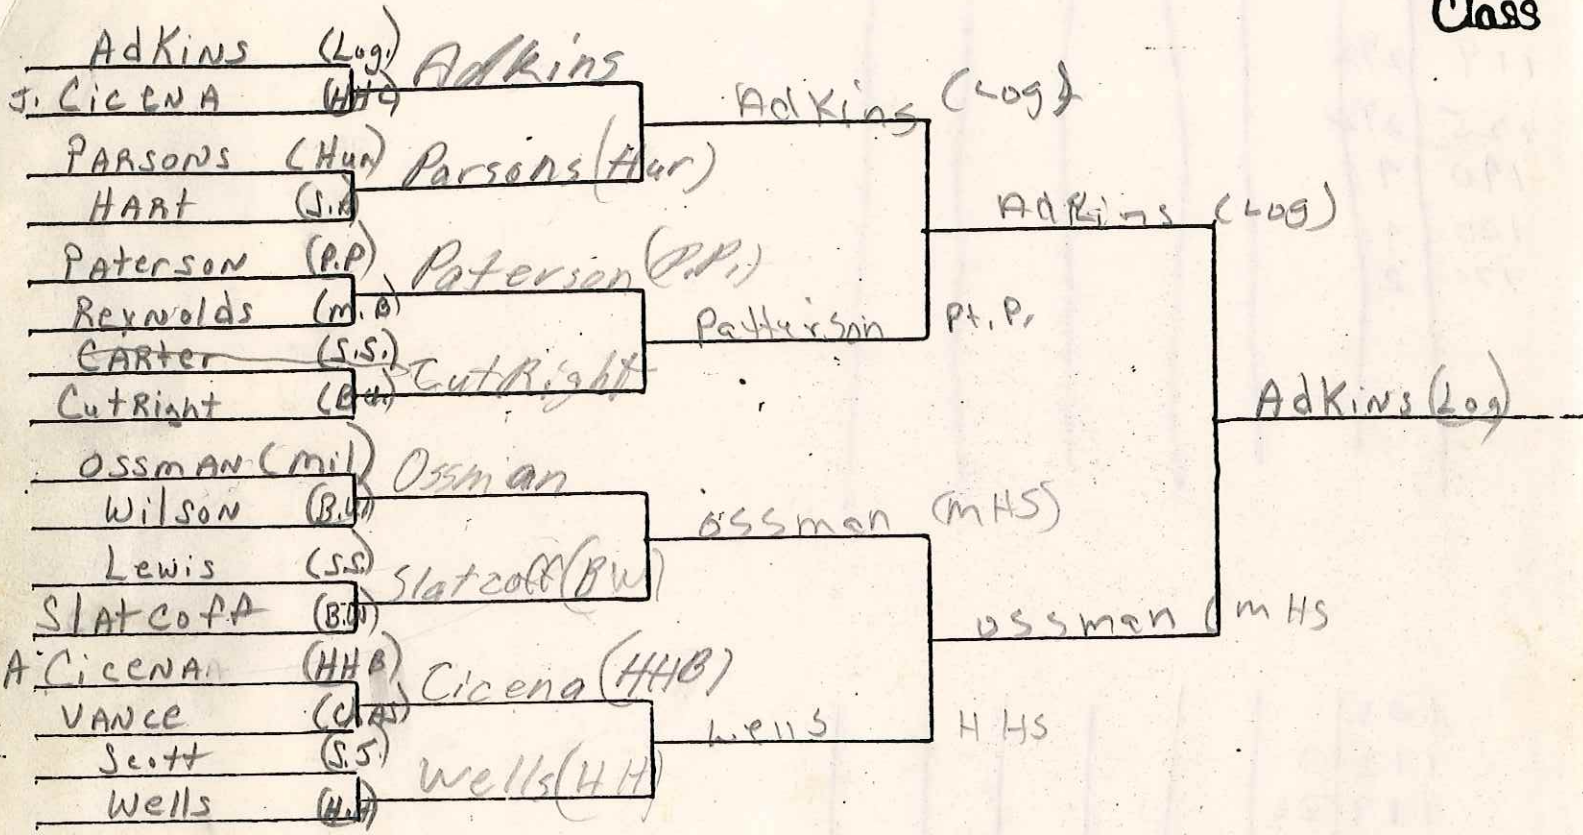 Class
AdKins (Log.)
J. CicenA (HHC)
PARSONS (Hun)
HARt (S.A)
PAterson (P.P)
Reynolds (M.B)
CARter (S.S.)
CutRight
OSSMAN (Mil)
Wilson (B.U)
Lewis (SS)
SlAtcoff (B.W)
A CicenA (HHB)
VANCe (CHAS)
Scott (S.S.)
Wells (H.H)
Adkins
Parsons (Hur)
Paterson (P.P.)
CutRight
Ossman
Slatcoff (BW)
Cicena (HHB)
Wells (HH)
AdKins (Log)
Patterson Pt. P.
ossman (mHS)
Wells HHS
AdKins (Log)
ossman (mHS
AdKins (Log)